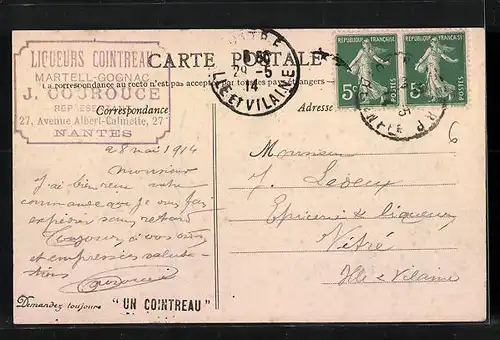 LIQUEURS COINTREAU
MARTELL-COGNAC
J. COUROUCE
REPRÉSENTANT
27, Avenue Albert-Calmette, 27
NANTES
CARTE POSTALE
La correspondance au recto n'est pas acceptée par tous pays étrangers
Correspondance
Adresse
ILLE ET VILAINE
29 -5
14
RÉPUBLIQUE FRANÇAISE
5c
RÉPUBLIQUE FRANÇAISE
5c
6
28 mai 1914
Monsieur
J'ai bien reçu votre
commande que je vous fais
expédier sans retard
Toujours à vos
et empressées saluta-
tions
Monsieur
Epicerie & liqueurs
Vitré
Ille & Vilaine
Demandez toujours "UN COINTREAU"